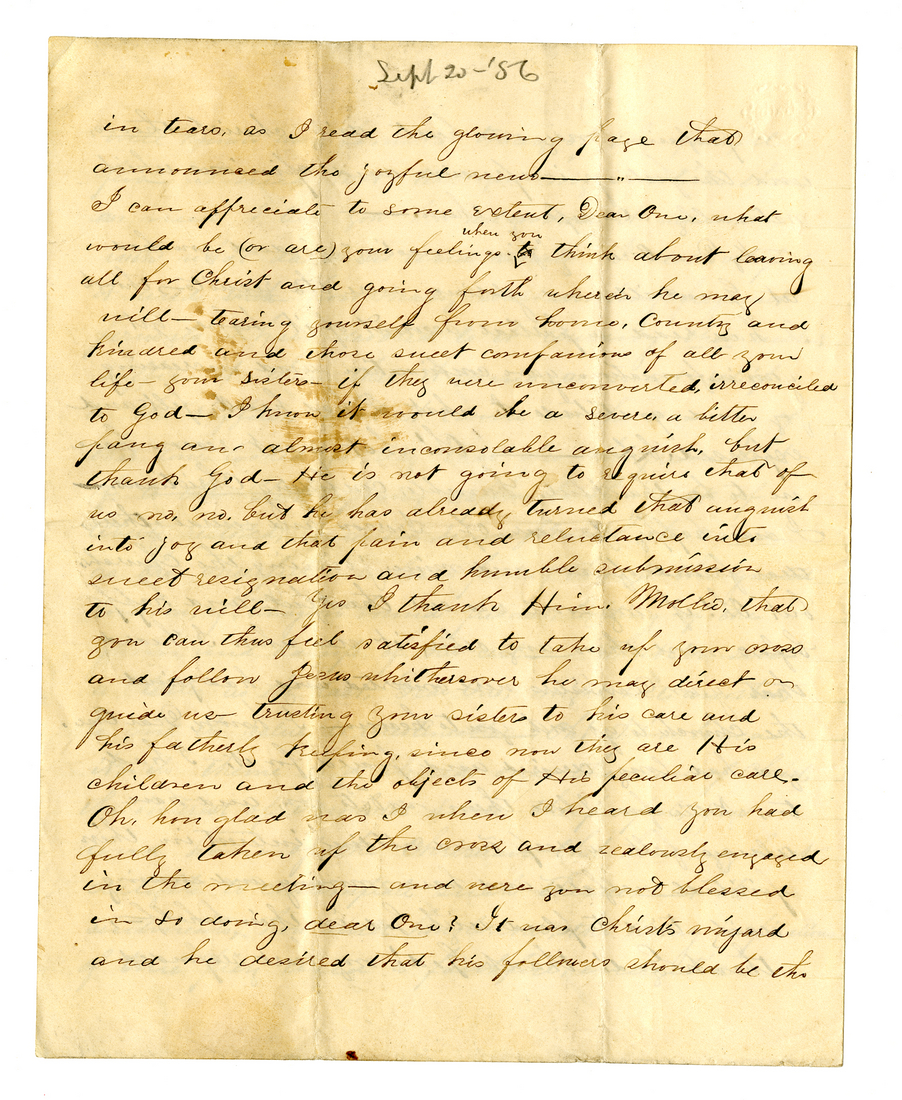 Sept 20-'56
in tears, as I read the glowing page that
announced the joyful news———"———
I can appreciate to some extent, Dear One, what
when you
would be (or are) your feelings to think about leaving
all for Christ and going forth wherein he may
will— tearing yourself from home, Country and
kindred and those sweet companions of all your
life— your sisters— if they were unconverted, irreconciled
to God— I know it would be a severe, a bitter
pang an almost inconsolable anguish, but
thank God— He is not going to require that of
us no, no, but he has already turned that anguish
into joy and that pain and reluctance into
sweet resignation and humble submission
to his will— Yes I thank Him. Mollie, that
you can thus feel satisfied to take up your cross
and follow Jesus whithersoever he may direct or
guide us— trusting your sisters to his care and
his fatherly keeping, since now they are His
children and the objects of His peculiar care.
Oh, how glad was I when I heard you had
fully taken up the cross and zealously engaged
in the meeting— and were you not blessed
in so doing, dear One? It was Christ's vinyard
and he desired that his followers should be the